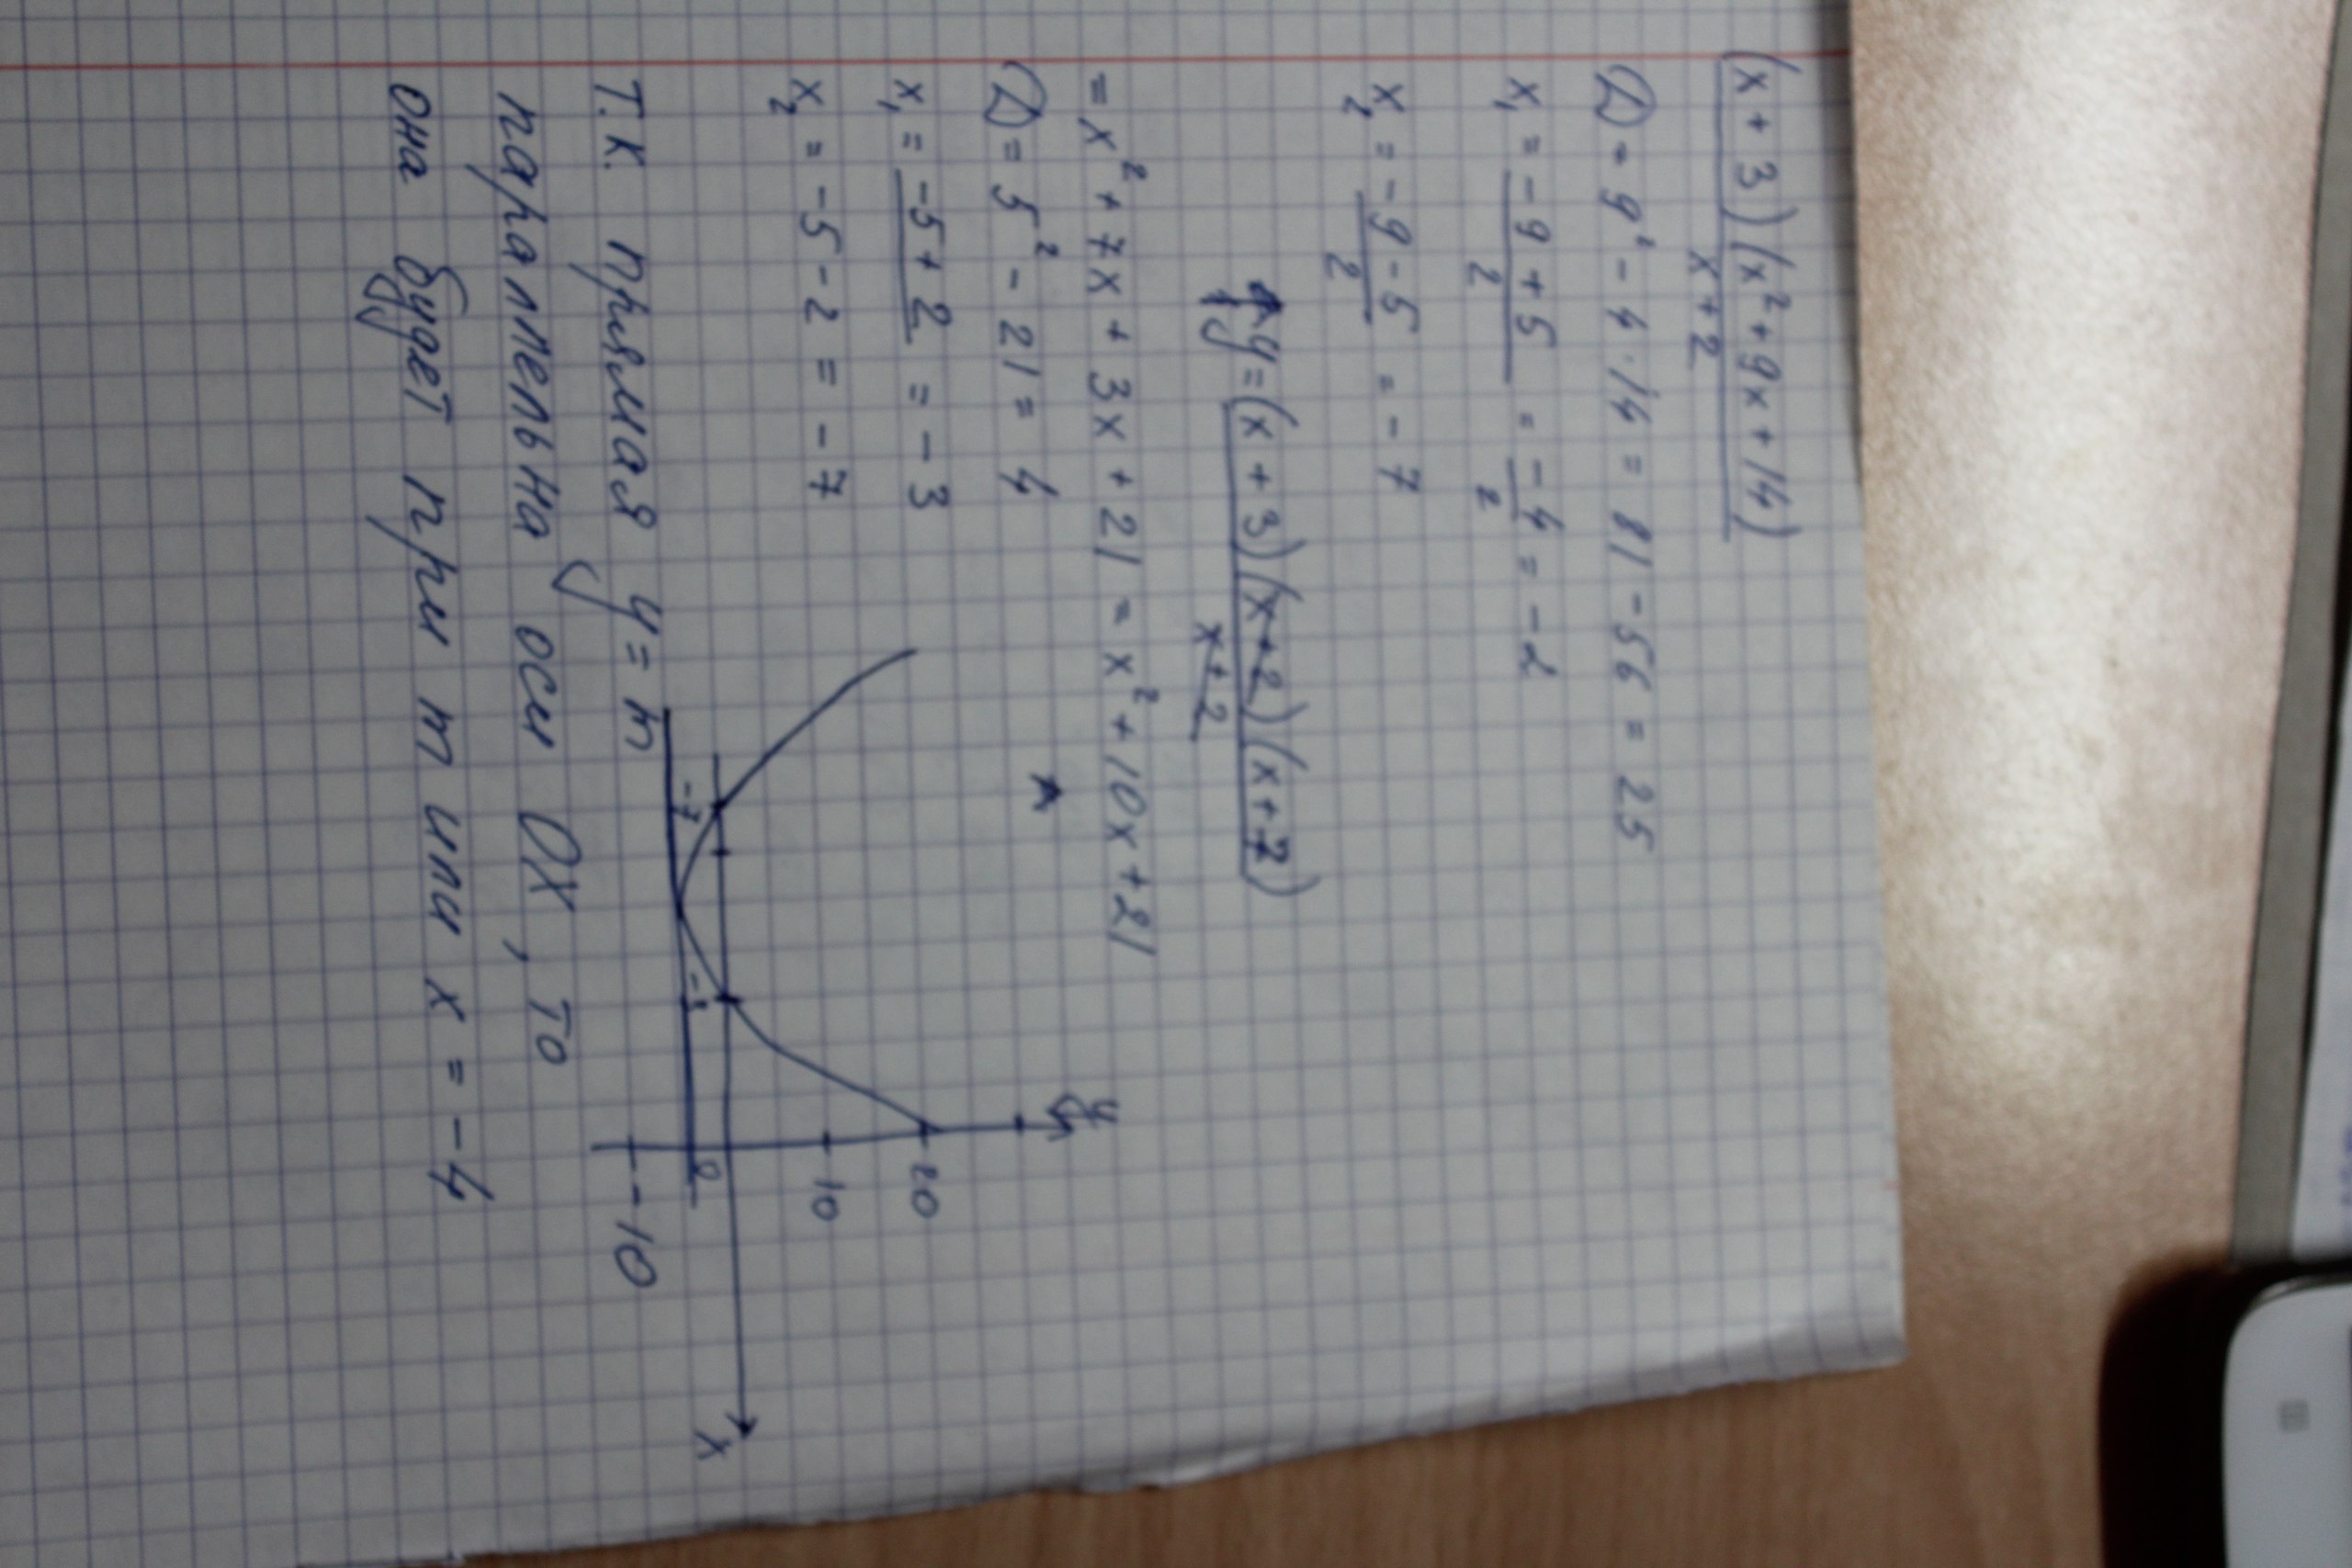 (x+3)(x²+9x+14)
x+2
D = 9² - 4·14 = 81-56 = 25
x₁ = -9+5 = -4 = -2
2 2
x₂ = -9-5 = -7
2
y=(x+3)(x+2)(x+7)
x+2
= x²+7x+3x+21 = x²+10x+21
D = 5² - 21 = 4
x₁ = -5+2 = -3
x₂ = -5-2 = -7
y
20
10
x
-7
-10
Т.К. прямая y=m
параллельна оси OX, то
она будет при m или x = -4